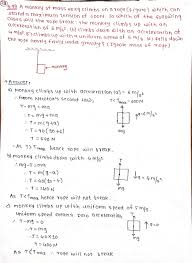 A monkey of mass 40kg climbs on a rope (figure) which can
stand a maximum tension of 600N. In which of the following
cases will the rope break: the monkey (a) climbs up with an
acceleration of 6 m/s² (b) climbs down with an acceleration of
4 m/s² (c) climbs up with a uniform speed of 5 m/s (d) falls down
the rope nearly freely under gravity? (Ignore mass of rope)
Answer:
a) monkey climbs up with acceleration (a) = 6 m/s²
T - mg = ma
T = mg + ma
T = m(g+a)
= 40(10+6)
= 640N
As T > Tmax hence rope will break.
b) monkey climbs down with 4 m/s²
mg - T = ma
T = m(g-a)
T = 40(10-4)
T = 240N
As T < Tmax hence rope will not break.
c) monkey climbs up with uniform speed of 5 m/s
uniform speed means zero acceleration
T = mg
T = 40×10
T = 400N
As T < Tmax rope will not break